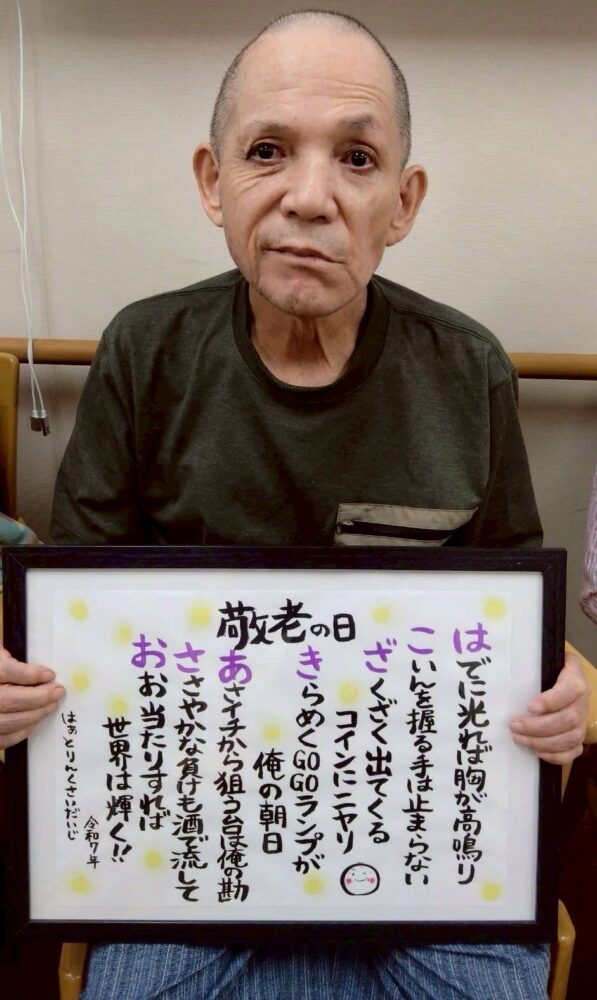 敬老の日
はでに光れば胸が高鳴り
こいんを握る手は止まらない
ざくざく出てくる
コインにニヤリ
きらめくGOGOランプが
俺の朝日
あさイチから狙う台は俺の勘
ささやかな負けも酒で流して
おお当たりすれば
世界は輝く!!
令和7年
はぁとりんくさいだいじ